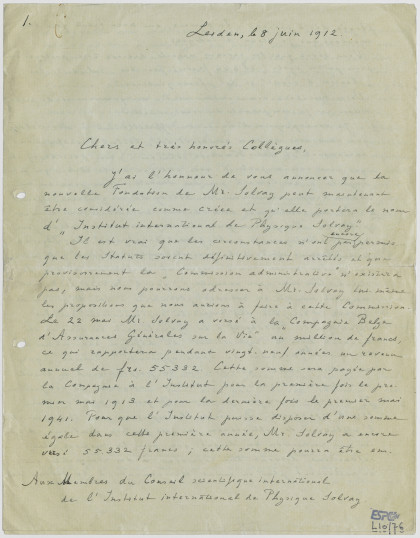 1.
Leiden, le 8 juin 1912.
Chers et très honorés Collègues,
J'ai l'honneur de vous annoncer que la
nouvelle Fondation de Mr. Solvay peut maintenant
être considérée comme créée et qu'elle portera le nom
d'„Institut international de Physique Solvay”
encore
Il est vrai que les circonstances n'ont pas permis
que les Statuts soient définitivement arrêtés et que
provisoirement la „Commission administrative” n'existera
pas, mais nous pourrons adresser à Mr. Solvay lui même
les propositions que nous aurions à faire à cette Commission.
Le 22 mai Mr. Solvay a versé à la „Compagnie Belge
d'Assurances Générales sur la Vie” un million de francs,
ce qui rapportera pendant vingt-neuf années un revenu
annuel de frs. 55332 Cette somme sera payée par
la Compagnie à l'Institut pour la première fois le pre-
mier mai 1913 et pour la dernière fois le premier mai
1941. Pour que l'Institut puisse disposer d'une somme
égale dans cette première année, Mr. Solvay a encore
versé 55332 francs; cette somme pourra être em-
Aux Membres du Conseil scientifique international
de l'Institut international de Physique Solvay
ESPCI
L10/76